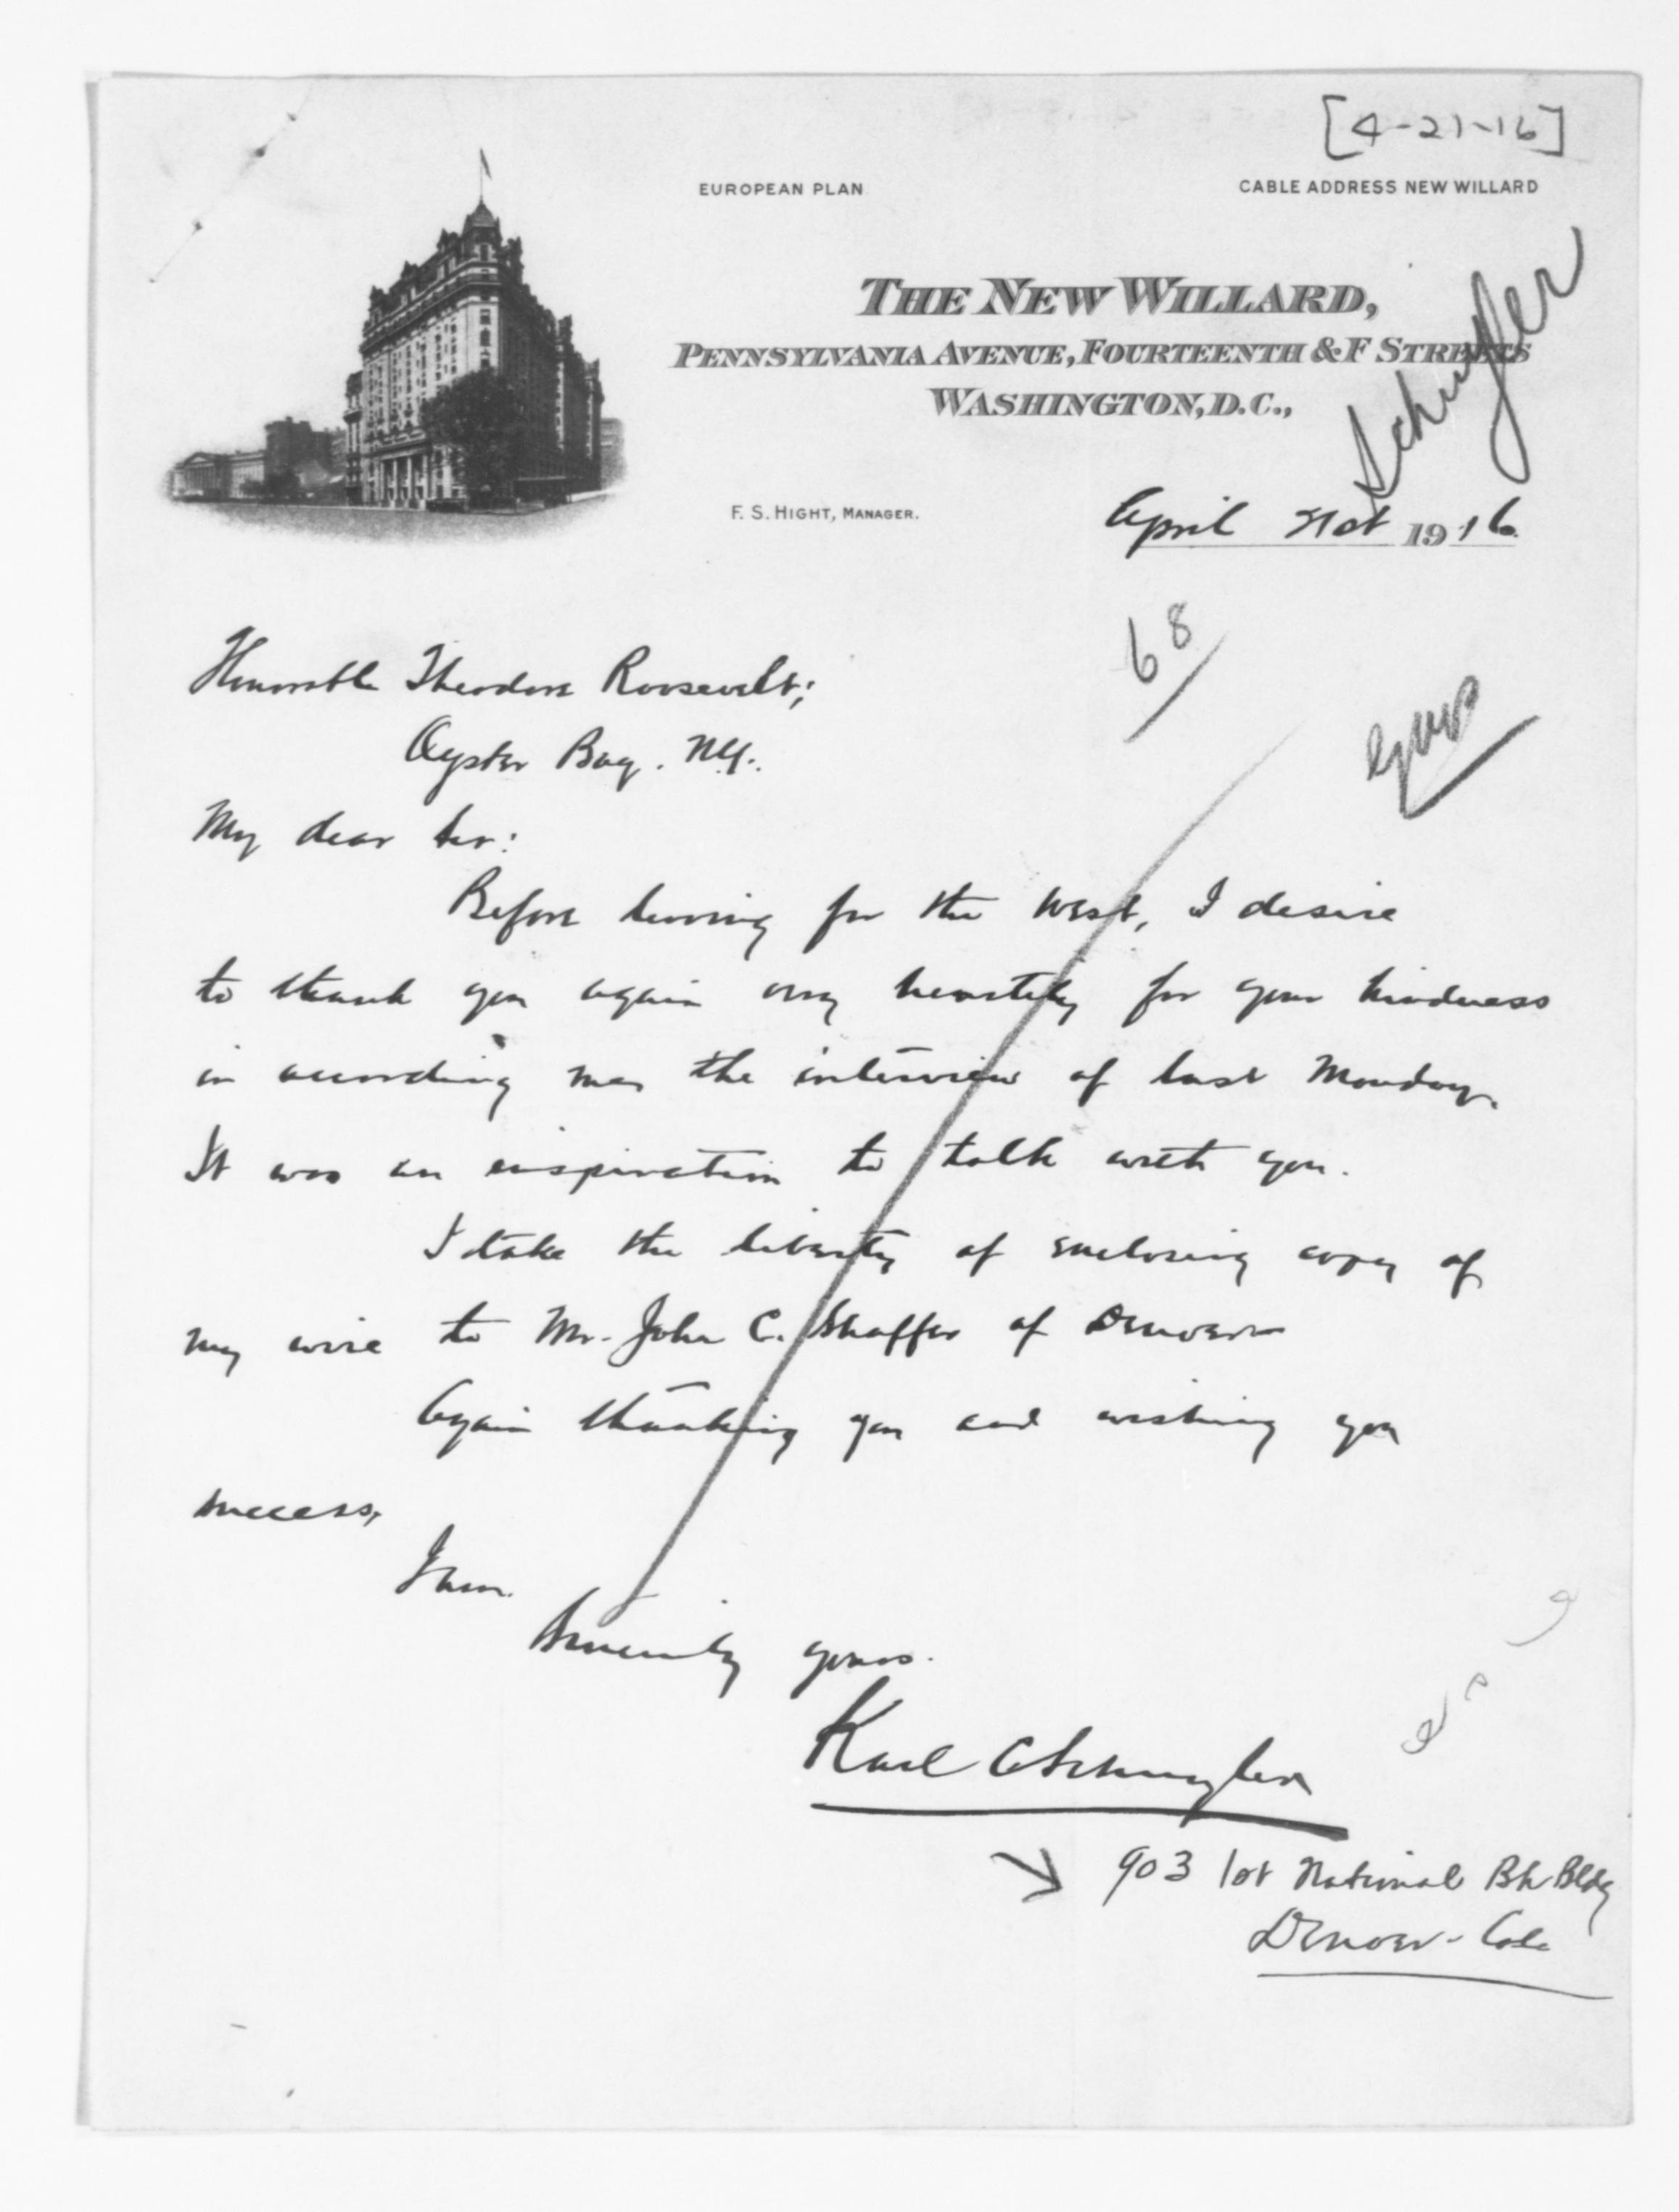 [4-21-16]
EUROPEAN PLAN
CABLE ADDRESS NEW WILLARD
THE NEW WILLARD,
PENNSYLVANIA AVENUE, FOURTEENTH & F STREETS
WASHINGTON, D.C.,
Schuyler
F. S. HIGHT, MANAGER.
April 21st 1916
68
Honorable Theodore Roosevelt;
Oyster Bay. N.Y.
My dear Sir:
Before leaving for the West, I desire
to thank you again very heartily for your kindness
in according me the interview of last Monday.
It was an inspiration to talk with you.
I take the liberty of enclosing copy of
my wire to Mr. John C. Shaffer of Denver
Again thanking you and wishing you
success,
I am.
Sincerely yours.
Karl C Schuyler
903 1st National Bk Bldg
Denver - Colo